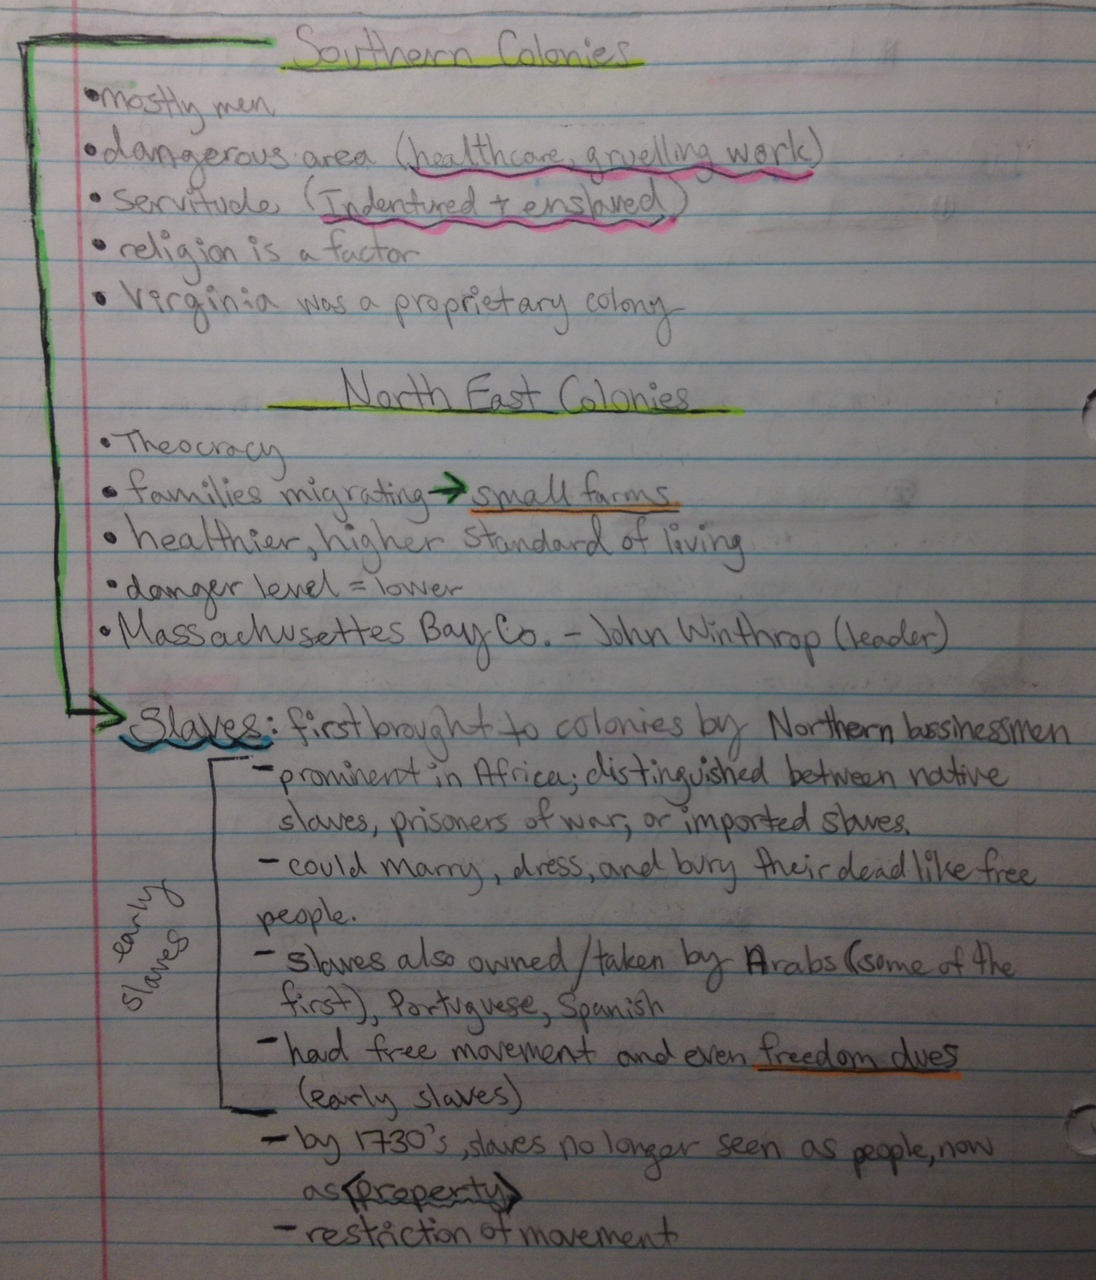 Southern Colonies
•mostly men
•dangerous area (healthcare, gruelling work)
• servitude (Indentured + enslaved)
• religion is a factor
• Virginia was a proprietary colony
North East Colonies
• Theocracy
• families migrating → small farms
• healthier, higher standard of living
• danger level = lower
• Massachusettes Bay Co. – John Winthrop (leader)
Slaves: first brought to colonies by Northern bussinessmen
- prominent in Africa; distinguished between native
slaves, prisoners of war, or imported slaves.
- could marry, dress, and bury their dead like free
people.
early
slaves
- slaves also owned/taken by Arabs (some of the
first), Portuguese, Spanish
- had free movement and even freedom dues
(early slaves)
- by 1730's, slaves no longer seen as people, now
as (property)
- restriction of movement